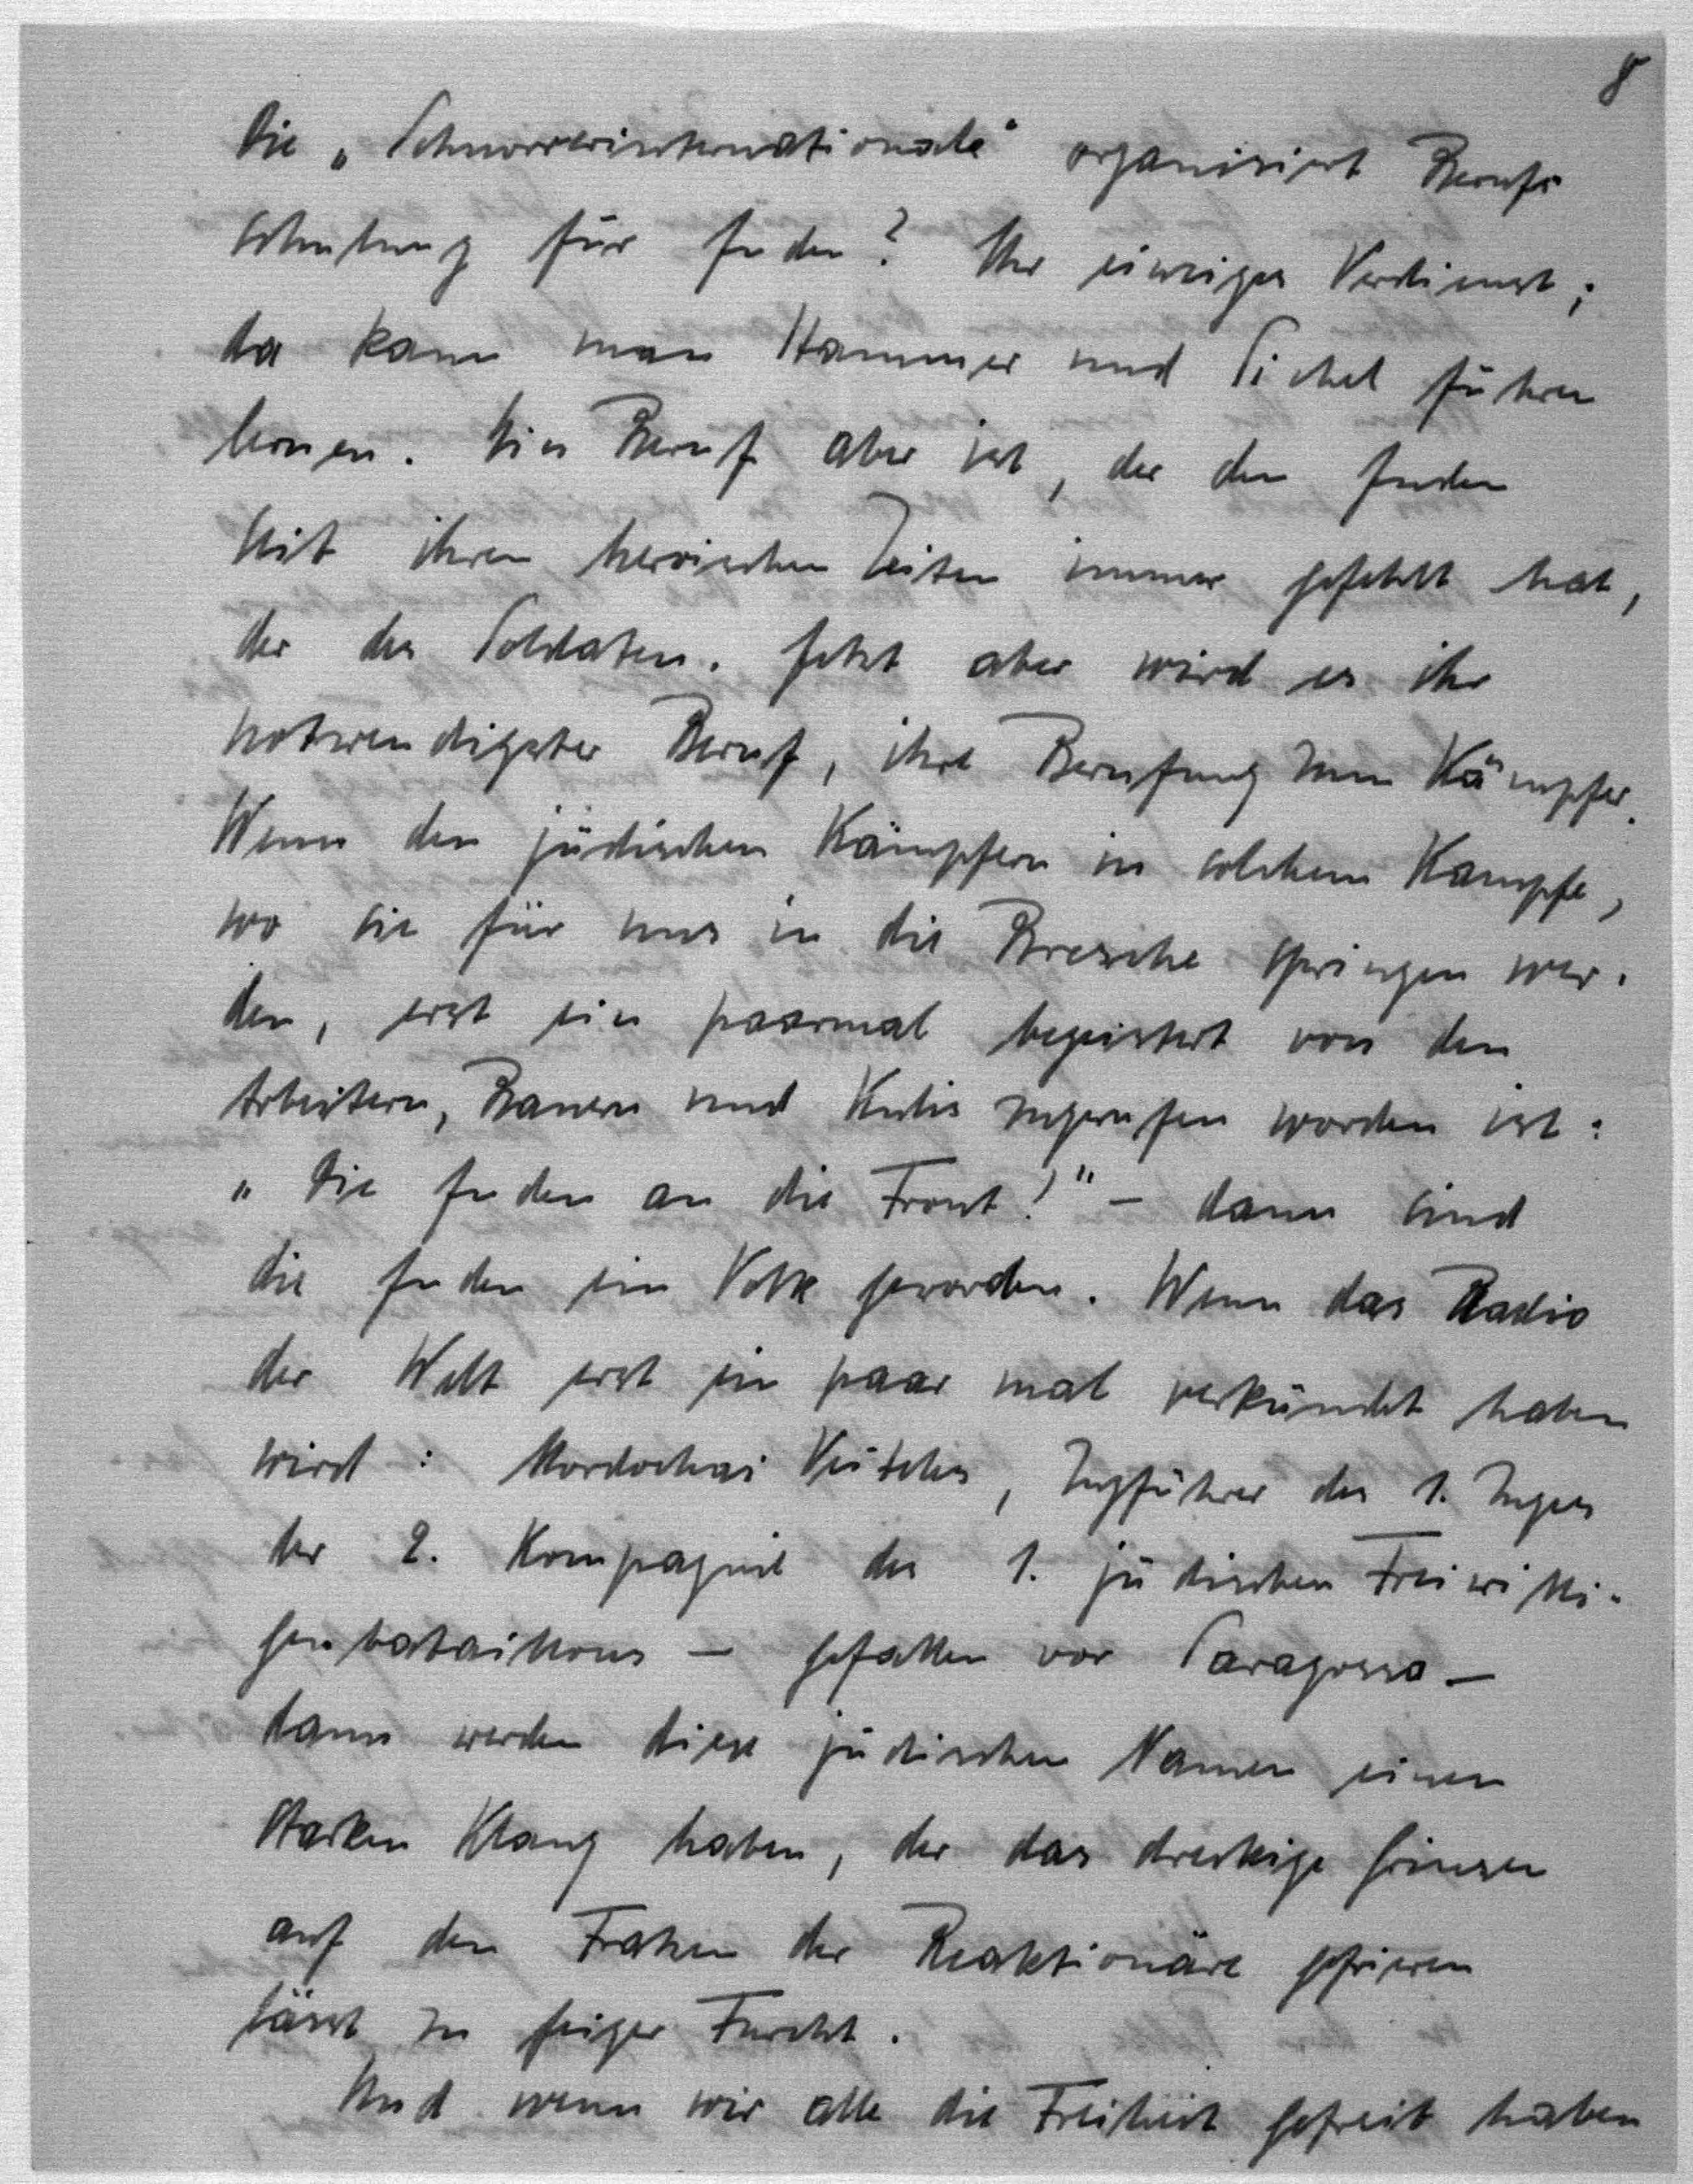 8
Die „Schnorrerinternationale" organisiert Berufs
schulung für Juden? Ihr einziges Verdienst;
da kann man Hammer und Sichel führen
lernen. Ein Beruf aber ist, der den Juden
seit ihren heroischen Zeiten immer gefehlt hat,
der des Soldaten. Jetzt aber wird es ihr
notwendigster Beruf, ihre Berufung zum Kämpfer.
Wenn den jüdischen Kämpfern in solchem Kampfe,
wo sie für uns in die Bresche springen wer-
den, erst ein paarmal begeistert von den
Arbeitern, Bauern und Kulis zugerufen worden ist:
„Die Juden an die Front!" – dann sind
die Juden ein Volk geworden. Wenn das Radio
der Welt erst ein paar mal verkündet haben
wird: Mordochai Veitches, Zugführer des 1. Zuges
der 2. Kompagnie des 1. jüdischen Freiwilli-
genbataillons – gefallen vor Saragossa –
dann werden diese jüdischen Namen einen
starken Klang haben, der das dreckige Grinsen
auf den Fratzen der Reaktionäre gefrieren
lässt zu feiger Furcht.
Und wenn wir alle die Freiheit gefreit haben